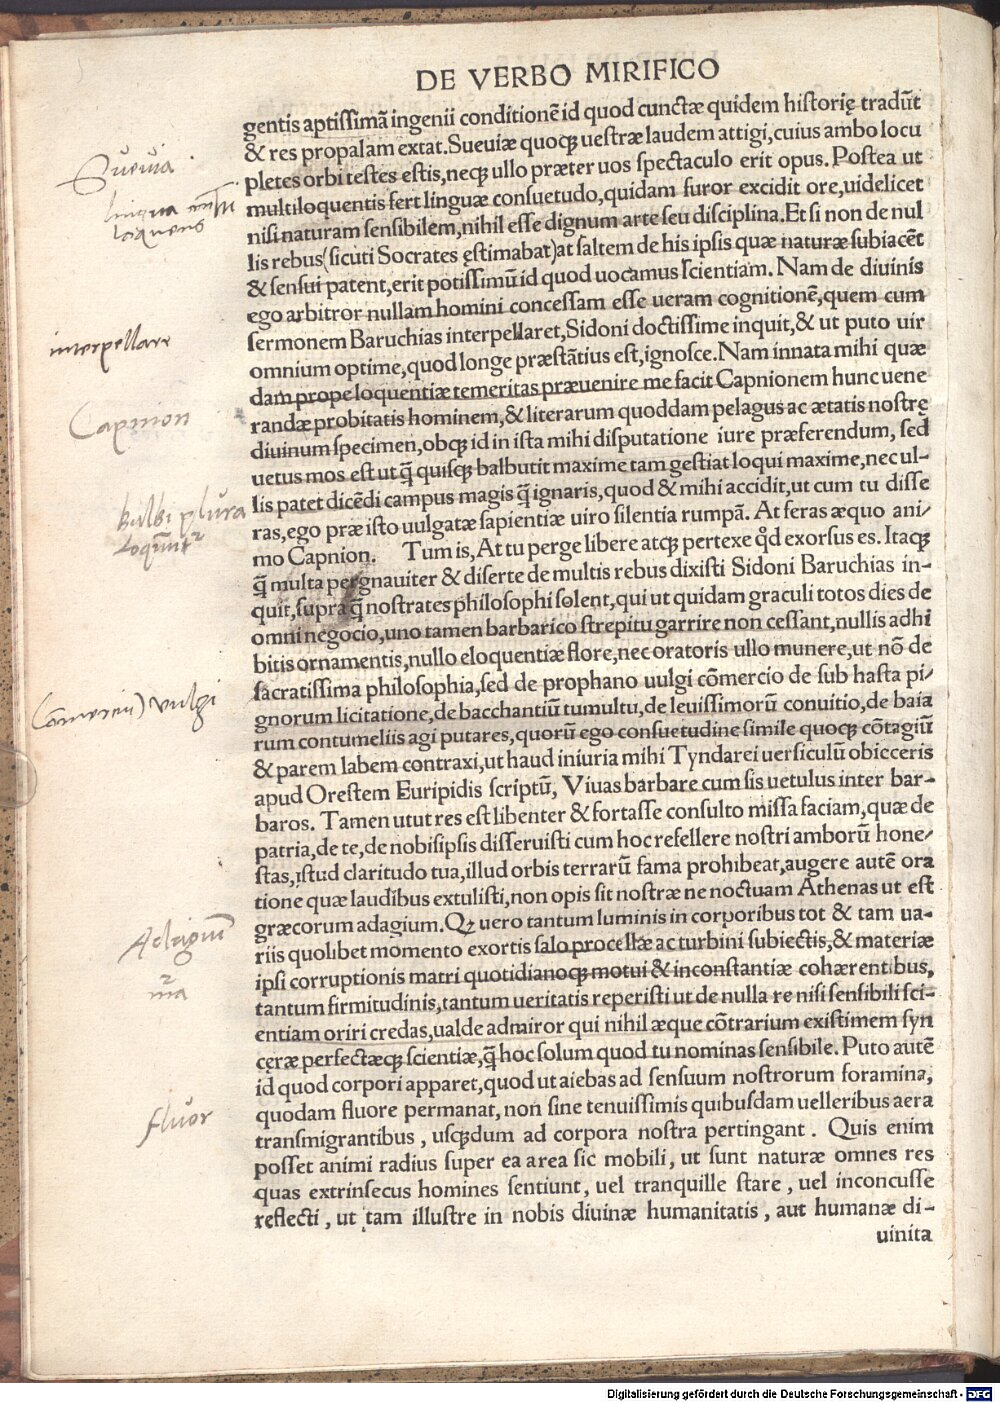 DE VERBO MIRIFICO
gentis aptissimā ingenii conditionē id quod cunctæ quidem historię tradūt
& res propalam extat. Sueuiæ quoq; uestræ laudem attigi, cuius ambo locu
pletes orbi testes estis, neq; ullo præter uos spectaculo erit opus. Postea ut
multiloquentis fert linguæ consuetudo, quidam furor excidit ore, uidelicet
nisi naturam sensibilem, nihil esse dignum arte seu disciplina. Et si non de nul
lis rebus (sicuti Socrates ęstimabat) at saltem de his ipsis quæ naturæ subiacēt
& sensui patent, erit potissimū id quod uocamus scientiam. Nam de diuinis
ego arbitror nullam homini concessam esse ueram cognitionē, quem cum
sermonem Baruchias interpellaret, Sidoni doctissime inquit, & ut puto uir
omnium optime, quod longe præstātius est, ignosce. Nam innata mihi quæ
dam prope loquentiæ temeritas præuenire me facit Capnionem hunc uene
randæ probitatis hominem, & literarum quoddam pelagus ac ætatis nostrę
diuinum specimen, obq; id in ista mihi disputatione iure præferendum, sed
uetus mos est ut q̄ quisq; balbutit maxime tam gestiat loqui maxime, nec ul-
lis patet dicēdi campus magis q̄ ignaris, quod & mihi accidit, ut cum tu disse
ras, ego præ isto uulgatæ sapientiæ uiro silentia rumpā. At feras æquo ani/
mo Capnion. Tum is, At tu perge libere atq; pertexe qd̄ exorsus es. Itaq;
q̄ multa pergnauiter & diserte de multis rebus dixisti Sidoni Baruchias in-
quit, supra q̄ nostrates philosophi solent, qui ut quidam graculi totos dies de
omni negocio, uno tamen barbarico strepitu garrire non cessant, nullis adhi
bitis ornamentis, nullo eloquentiæ flore, nec oratoris ullo munere, ut nō de
sacratissima philosophia, sed de prophano uulgi cōmercio de sub hasta pi/
gnorum licitatione, de bacchantiū tumultu, de leuissimorū conuitio, de baia
rum contumeliis agi putares, quorū ego consuetudine simile quoq; cōtagiū
& parem labem contraxi, ut haud iniuria mihi Tyndarei uersiculū obiicceris
apud Orestem Euripidis scriptū, Viuas barbare cum sis uetulus inter bar-
baros. Tamen utut res est libenter & fortasse consulto missa faciam, quæ de
patria, de te, de nobisipsis disseruisti cum hoc refellere nostri amborū hone/
stas, istud claritudo tua, illud orbis terrarū fama prohibeat, augere autē ora
tione quæ laudibus extulisti, non opis sit nostræ ne noctuam Athenas ut est
græcorum adagium. Qz uero tantum luminis in corporibus tot & tam ua-
riis quolibet momento exortis salo procellæ ac turbini subiectis, & materiæ
ipsi corruptionis matri quotidianoq; motui & inconstantiæ cohærentibus,
tantum firmitudinis, tantum ueritatis reperisti ut de nulla re nisi sensibili sci-
entiam oriri credas, ualde admiror qui nihil æque cōtrarium existimem syn
cęræ perfectæq; scientiæ, q̄ hoc solum quod tu nominas sensibile. Puto autē
id quod corpori apparet, quod ut aiebas ad sensuum nostrorum foramina,
quodam fluore permanat, non sine tenuissimis quibusdam uelleribus aera
transmigrantibus, usq;dum ad corpora nostra pertingant. Quis enim
posset animi radius super ea area sic mobili, ut sunt naturæ omnes res
quas extrinsecus homines sentiunt, uel tranquille stare, uel inconcusse
reflecti, ut tam illustre in nobis diuinæ humanitatis, aut humanæ di-
uinita
Suevia
lingua
loquens
interpellare
Capnion
balbi plura
loquunt
Cōmercii) vulgi
Adagium
fluor
Digitalisierung gefördert durch die Deutsche Forschungsgemeinschaft - DFG